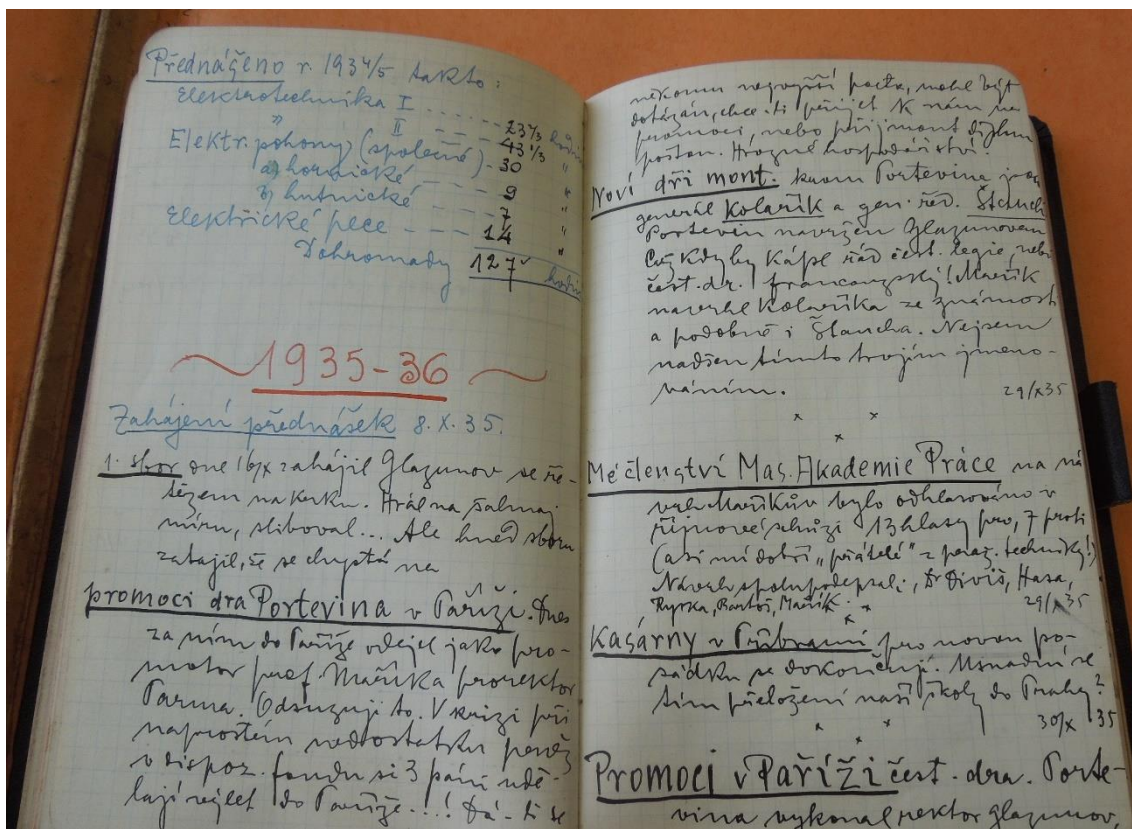 Přednášeno r. 1934/5 takto:
Elektrotechnika I ...... 23 2/3 hodin
" II - - - - 43 1/3 "
Elektr. pohony (společné) - 30 "
a) hornické - - - - 9 "
b) hutnické - - - - 7 "
Elektrické pece - - - - 14 "
Dohromady 127 hodin
~ 1935-36 ~
Zahájení přednášek 8. X. 35.
1. sbor dne 16/X zahájil Glazunov se ře-
tězem na krku. Hrál na šalmaj
míru, sliboval... Ale hned sboru
zatajil, že se chystá na
promoci dra Portevina v Paříži. Dnes
za ním do Paříže odejel jako pro-
motor prof. Mařík a prorektor
Parma. Odsuzuji to. V krizi při
naprostém nedostatku peněz
v dispoz. fondu si 3 páni udě-
lají výlet do Paříže...! Dá-li se
někomu nejvyšší pocta, mohl být
dotázán, chce-li přijet k nám na
promoci, nebo přijmout diplom
poštou. Hrozné hospodářství.
Noví dři mont. krom Portevina jsou
generál Kolařík a gen. řed.
Portevin navržen Glazunovem
Což kdyby kápl řád čest. legie, nebo
čest. dr. francouzský! Mařík
navrhl Kolaříka ze známosti
a podobně i Šlaucha. Nejsem
nadšen tímto trojím jmeno-
váním.
29/X 35
x x
x
Mé členství Mas. Akademie Práce na ná-
vrh Maříkův bylo odhlasováno v
říjnové schůzi 13 hlasy pro, 7 proti
(asi mí dobří „přátelé" z techniky!)
Návrh spolupodepsali: Dr Diviš, Hasa,
Ryska, Bartoš, Mařík.
29/X 35
x x
x
Kasárny v Příbrami pro novou po-
sádku se dokončují. Usnadní se
tím přeložení naší školy do Prahy?
30/X 35
x x
Promoci v Paříži čest. dra. Porte-
vina vykonal rektor Glazunov,